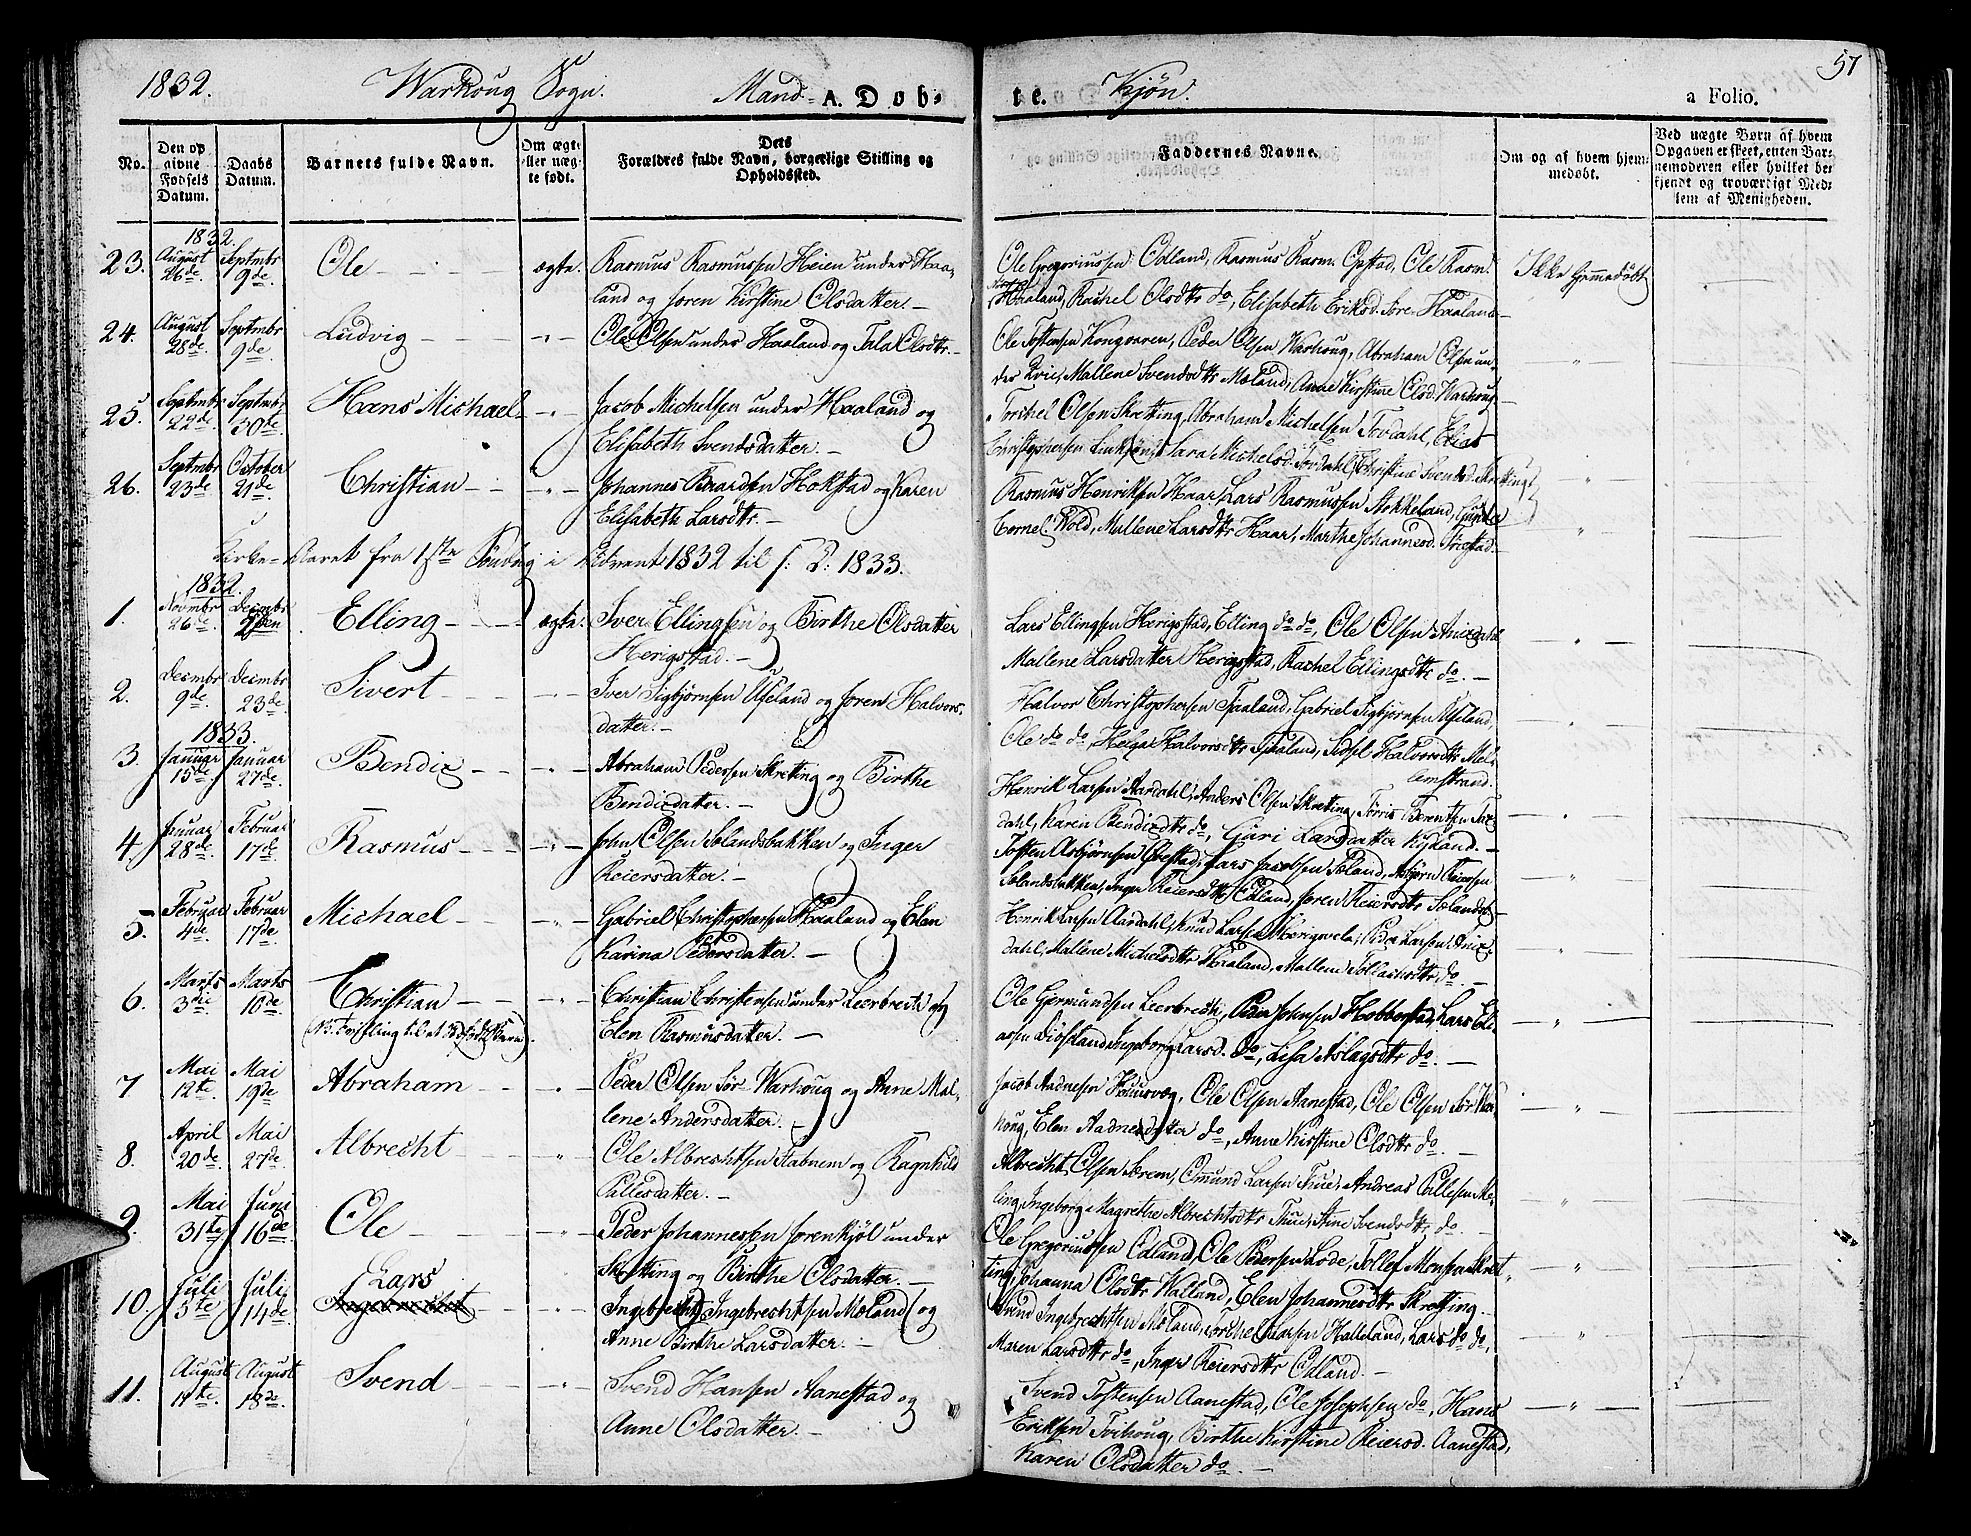 57
1832. Warhoug Sogn. Mand- A. Døb- te. Kjøn. a Folio.
No. Den op givne Fødsels Datum. Daabs Datum. Barnets fulde Navn. Om ægte eller uægte født. Dets Forældres fulde Navn, borgerlige Stilling og Opholdssted. Faddernes Navne. Om og af hvem hjemmedøbt. Ved uægte Børn af hvem Opgaven er skeet, enten Barnemoderen eller hvilket bekjendt og troværdigt Medlem af Menigheden.
1832.
23. August 26de Septmbr 9de. Ole ægte. Rasmus Rasmussen Heien under Haa-
land og Søren Kirstine Olsdatter.
Ole Gregoriussen Odland, Rasmus Rasm. Opstad, Ole Rasm.
Haaland, Rachel Olsdtr do, Elisabeth Eriksd. Søre Haaland
Ikke hjemmedøbt
24. August 28de. Septmbr 9de Ludvig Ole Olsen under Haaland og Tala Olsdtr.
Ole Tostensen Kongvaren, Peder Olsen Warhoug, Abraham Olsen un-
der Mallene Svendsdtr Mæland, Anne Kirstine Olsd. Warhoug
25. Septmbr 22de Septmbr 30te. Hans Michael Jacob Michelsen under Haaland og
Elisabeth Svendsdatter.
Torchel Olsen Skretting, Abraham Michelsen Tovdahl, Elias
Christophersen Sara Michelsd. Tovdahl, Christine Svensd. Skretting
26. Septmbr 23de October 21de. Christian Johannes Hokstad og Karen
Elisabeth Larsdtr.
Rasmus Henriksen Haar, Lars Rasmussen Stokkeland,
Cornel. Mallene Larsdtr Haar, Marthe Johannesd.
Kirke-Aaret fra 1ste Søndag i Advent 1832 til s: D: 1833.
1832.
1. Novmbr 26de. Decmbr Elling ægte. Iver Ellingsen og Birthe Olsdatter
Herigstad.
Lars Ellingsen Herigstad, Elling do do, Ole Olsen Anixdahl
Mallene Larsdatter Herigstad, Rachel Ellingsdtr do.
2. Decmbr 9de. Decmbr 23de. Sivert Iver Sigbjørnsen Useland og Søren Halvors-
datter.
Halvor Christophersen Taaland, Gabriel Sigbjørnsen Useland
Ole do do, Helga Halvorsdtr Taaland, Sidsel Halvorsdtr Mel-
lemstrand.
1833.
3. Januar 15de Januar 27de. Bendix Abraham Pedersen Skretting og Birthe
Bendixdatter.
Henrik Larsen Aardahl, Anders Olsen Skretting, Tørris Berentsen
dahl, Karen Bendixdtr do, Guri Larsdatter Rydland.
4. Januar 28de. Februar 17de. Rasmus John Olsen Solandsbakken og Inger
Reiersdatter.
Tosten Asbjørnsen Lars Jacobsen Soland, Asbjørn Reiersen
Solandsbakken, Inger Reiersdtr Edland, Søren Reiersdtr Solandsb.
5. Februar 4de. Februar 17de. Michael Gabriel Christophersen Haaland og Elen
Karina Pedersdatter.
Henrik Larsen Aardahl, Knud Larsen Peder Larsen Anix-
dahl, Mallene Michelsdtr Haaland, Mallene do.
6. Marts 3die Marts 10de. Christian
(NB. Tvilling til et Barn).
Christian Christensen under Leerbrech og
Elen Rasmusdatter.
Ole Gjermundsen Leerbrech, Peder Johnsen Hobberstad, Lars Eli-
assen Ingeborg Larsd. do, Lisa Aslagsdtr do.
7. Mai 12te. Mai 19de Abraham Peder Olsen Sør Warhoug og Anne Mal-
lene Andersdatter.
Jacob Aadnesen Huusvæg, Ole Olsen Aanestad, Ole Olsen Sør War-
houg, Elen Aadnesdatter do, Anne Kirstine Olsdtr do.
8. April 20de. Mai 27de Albrecht Ole Albrechtsen Stabnem og Ragnhild
Pallesdatter.
Albrecht Olsen Særem, Omund Larsen Thue, Andreas Pallesen Me-
ling, Ingeborg Magrethe Albrechtsdtr Thue, Stine Svendsdtr do
9. Mai 31te Juni 16de Ole Peder Johannessen Sørenkjøl under
Skretting og Birthe Olsdatter.
Ole Gregoriussen Edland, Ole Pedersen Lode, Tollef Monsen Skret-
ting, Johanna Olsdtr Walland, Elen Johannesdtr Skretting.
10. Juli 5te Juli 14de. Lars Ingebrecht Ingebrecht Ingebrechtsen Mæland og
Anne Birthe Larsdatter.
Svend Ingebrechtsen Mæland, Torchel Larsen Halleland, Lars do do,
Maren Larsdtr do, Inger Reiersdtr Edland.
11. August 11te. August 18de Svend Svend Hansen Aanestad og
Anne Olsdatter.
Svend Tostensen Aanestad, Ole Josephsen do, Hans
Eriksen Tvihoug, Birthe Kirstine Reiersd. Aanestad,
Karen Olsdatter do.